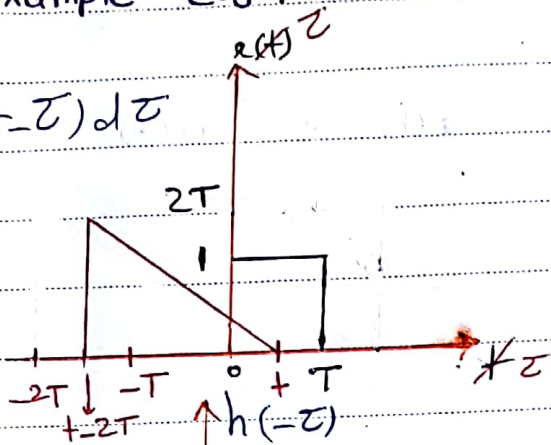 xample 2.8 :
x(t) τ
-τ)dτ
2T
1
-2T t-2T -T 0 t T t τ
h(-τ)